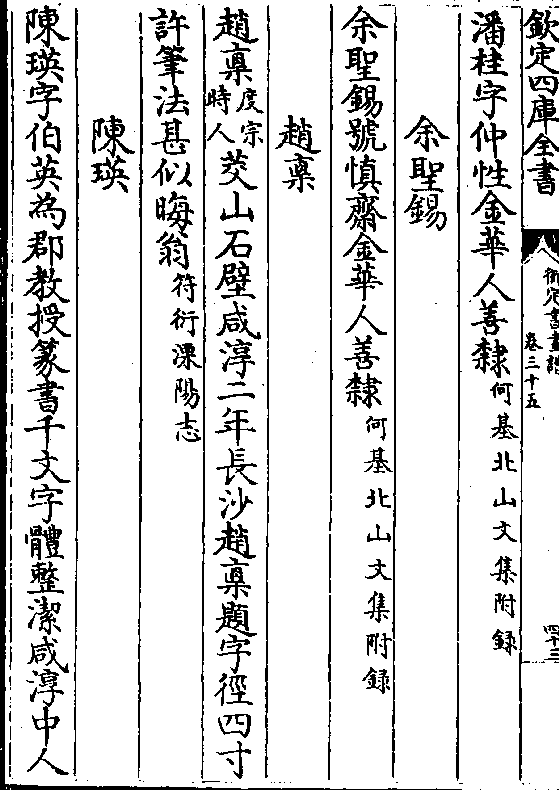 欽定四庫全書
御定書畫譜
卷三十五
四十三
潘桂字仲性金華人善隸何基北山文集附録
余聖錫
余聖錫號慎齋金華人善隸何基北山文集附録
趙禀
趙禀度宗時人茭山石壁咸淳二年長沙趙禀題字徑四寸
許筆法甚似晦翁符衍溧陽志
陳瑛
陳瑛字伯英為郡教授篆書千文字體整潔咸淳中人